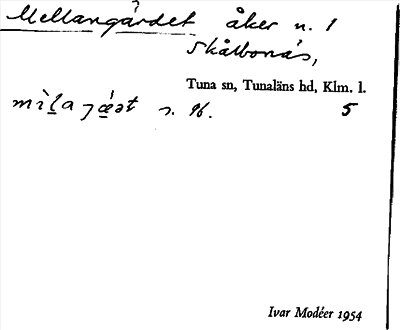 Mellangärdet åker n. 1
Skålbonäs,
Tuna sn, Tunaläns hd, Klm. l.
s. 96. 5
Ivar Modéer 1954